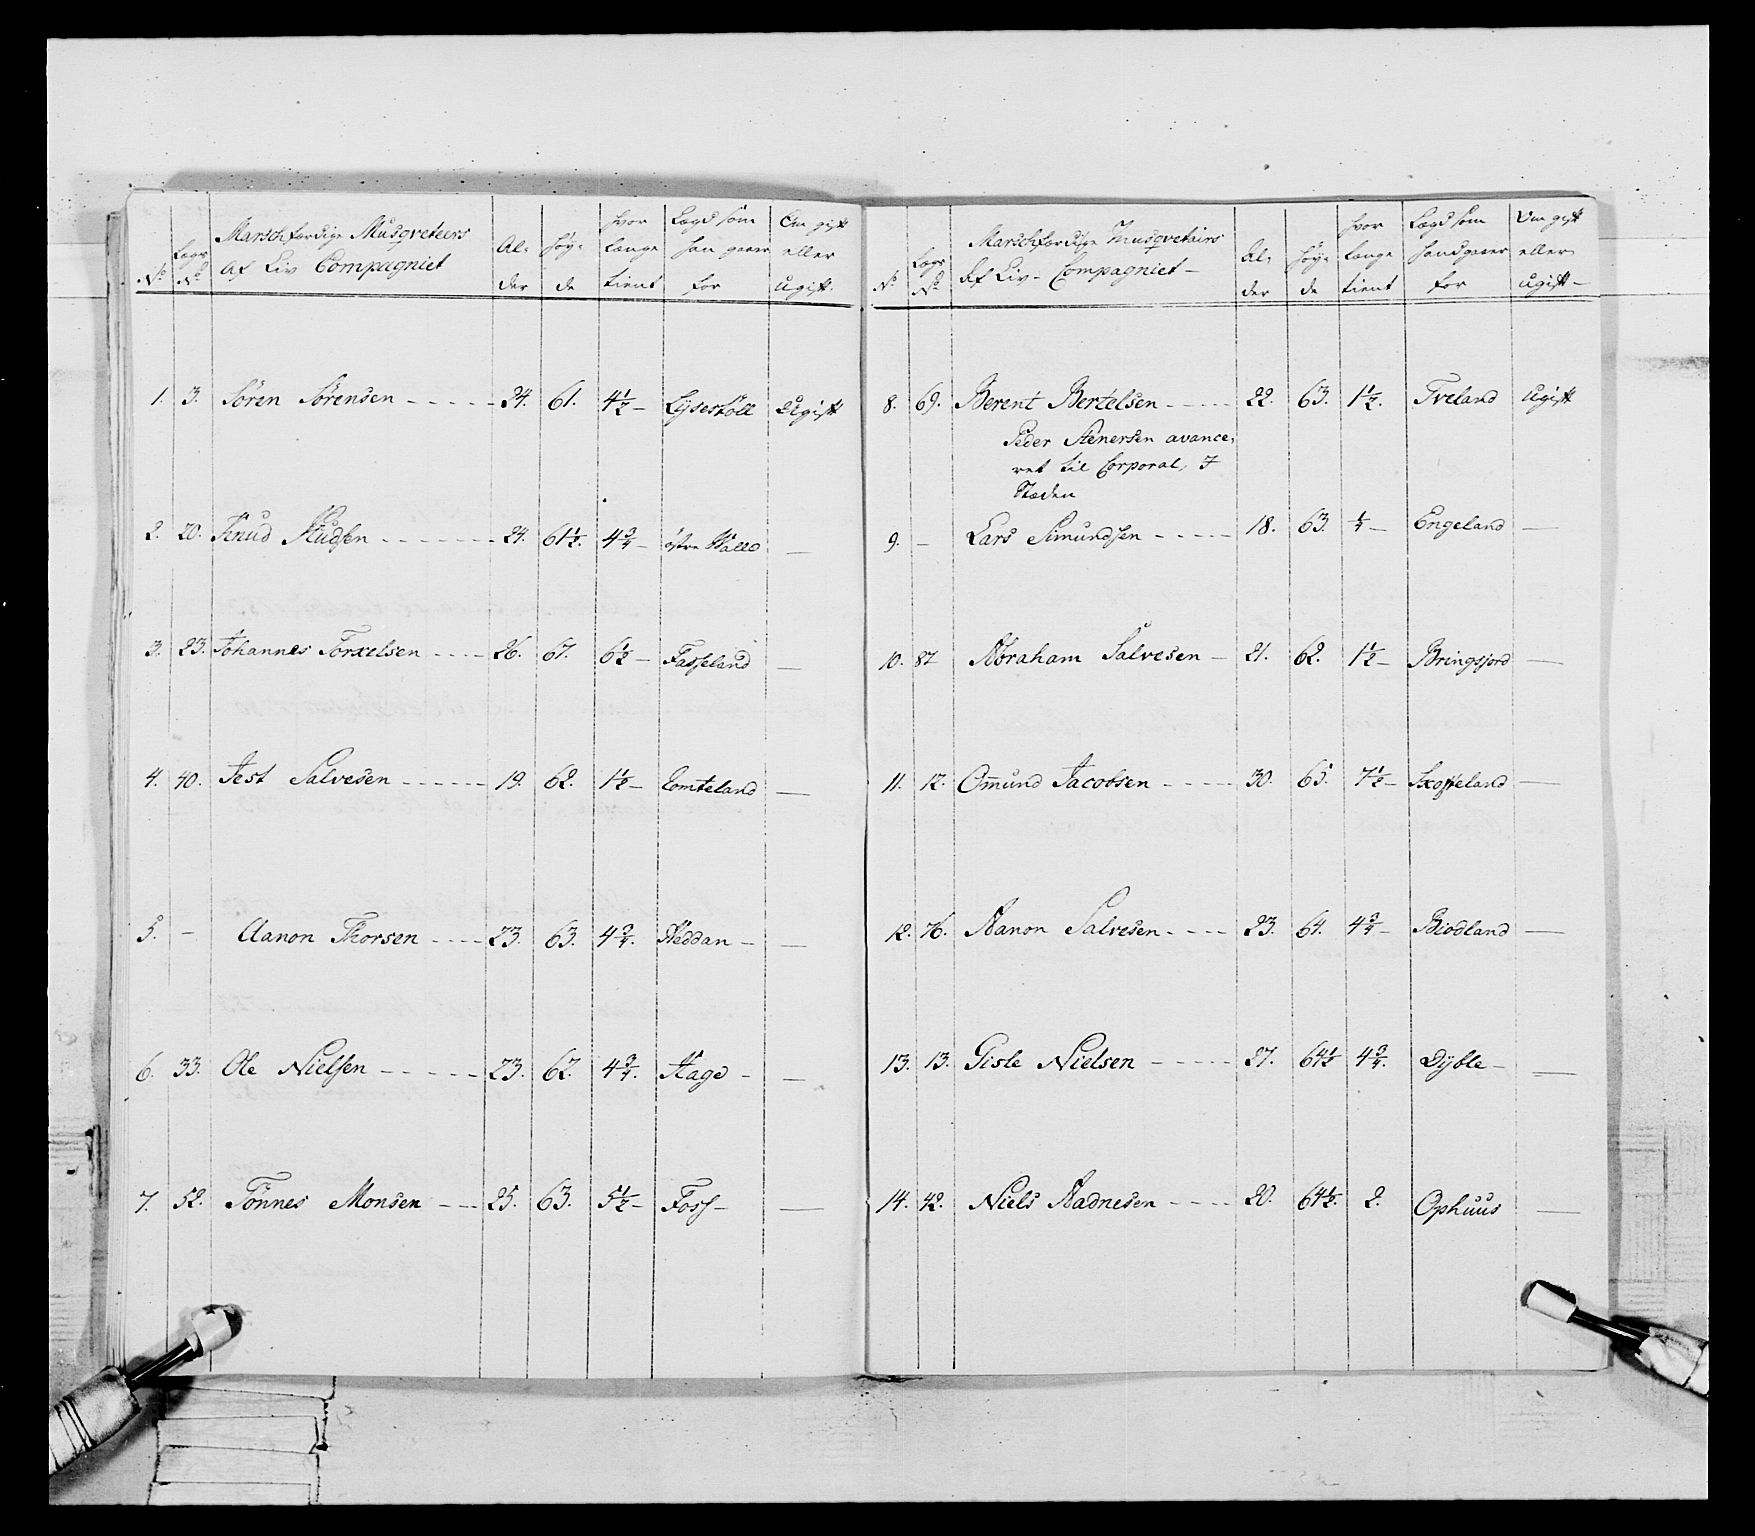 Marschfærdige Musqveteers
af Liv Compagniet
No Lægs No Al- der Høy- de hvor længe tient Lægd som han gaaer for Om gift eller ugift
1. 3. Sören Sörensen - - - - - 24. 61. 4½ - Lÿsestöll Ugift
2. 20. Knud Knudsen - - - - - - - 24. 61½. 4¾ - östre Walle —
3. 23. Johannes Torkelsen - - - - 26. 67. 6½ - Fasseland —
4. 40. Jest Salvesen - - - - - - 19. 62. 1½ - Tomteland —
5. - Aanon Thorsen - - - - 23. 63. 4¾. Heddan - —
6. 33. Ole Nielsen - - - - - - 23. 62. 4¾. Hage - —
7. 52. Tönnes Monsen - - - 25. 63. 5½ - Foss - —
Marschfærdige Musqvetairs
Af Liv - Compagniet -
No Lægs No Al- der Høy- de hvor længe tient Lægd som hand gaaer for Om gift eller ugift -
8. 69. Berent Bertelsen - - - - 22. 63. 1½. Tveland Ugift
Peder Stenersen avance-
ret til Corporal, I
Stæden
9. - Lars Simundsen - - - - - 18. 63. ¼ - Engeland —
10. 87 Abraham Salvesen - 21. 62. 1½ - Bringsjord —
11. 12. Omund Jacobsen - - - - - 30. 65. 7½ - Skofteland —
12. 76. Aanon Salvesen - - - - 23. 64. 4¾ - Biodland —
13. 13. Gisle Nielsen - - - - - 27. 64½ 4¾. Dÿble - —
14. 42. Niels Aadnesen - - - - 20. 64½. 2. Ophuus —